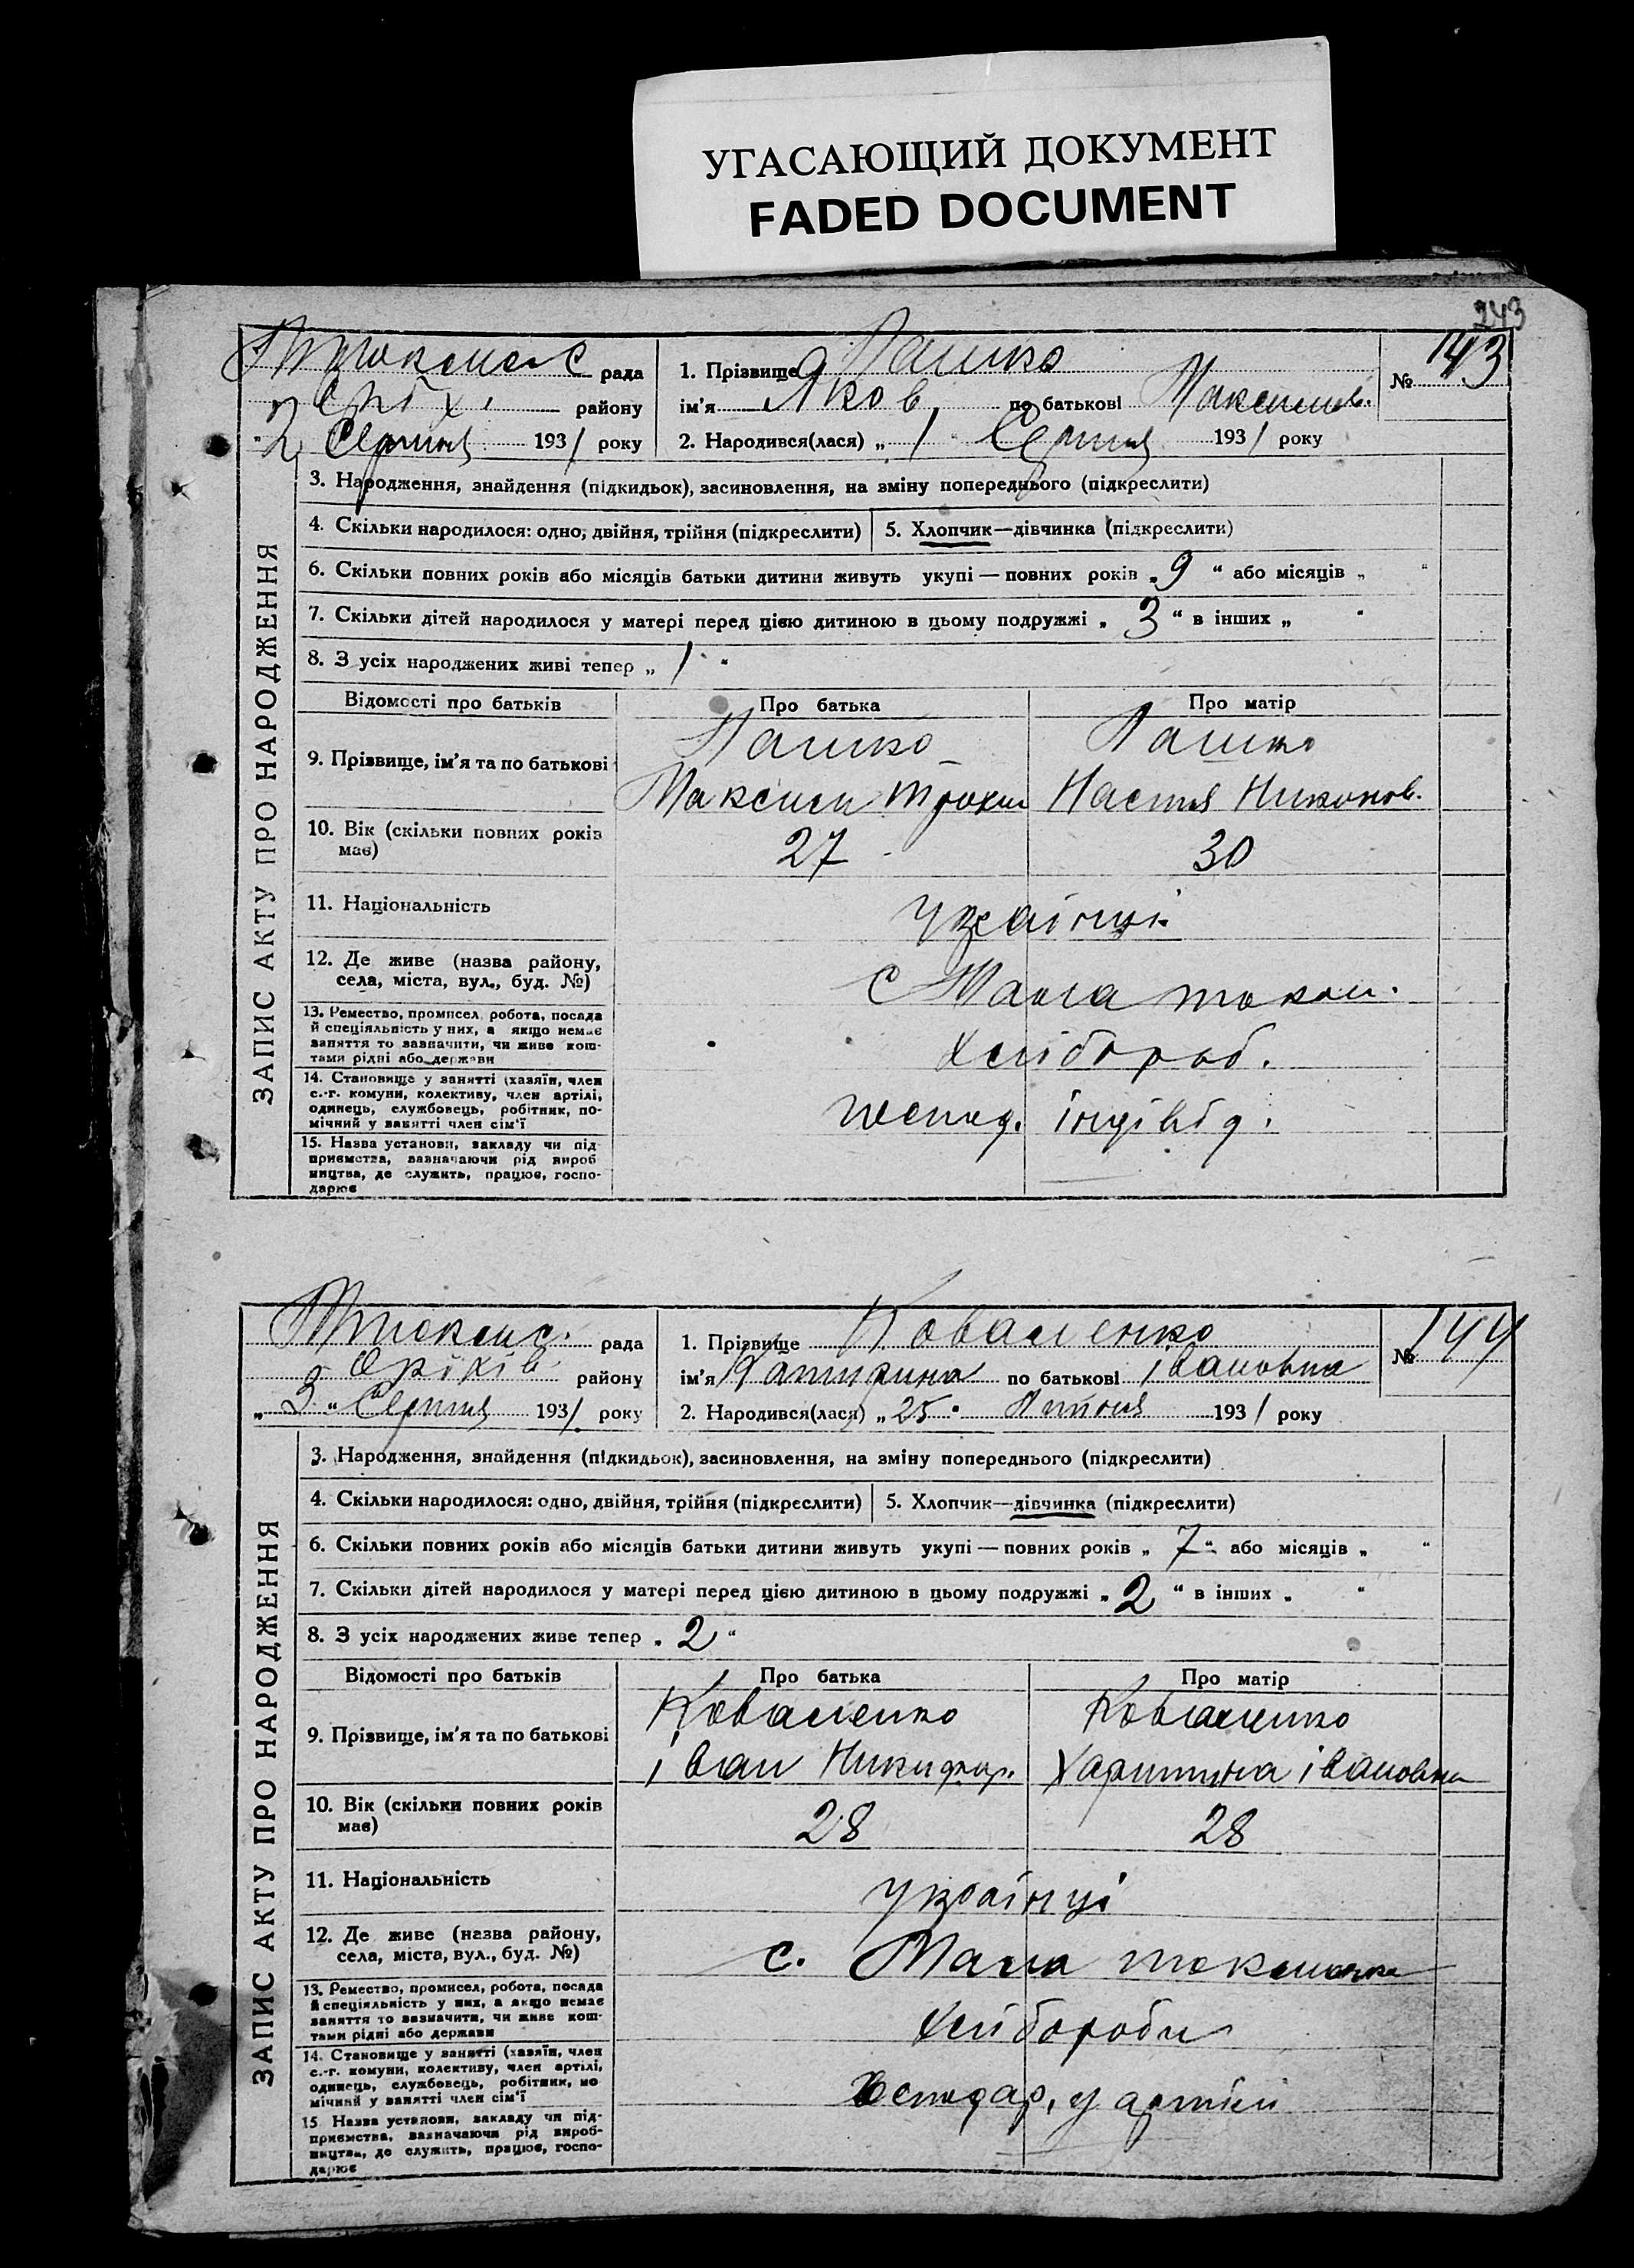 УГАСАЮЩИЙ ДОКУМЕНТ
FADED DOCUMENT
243
рада
району
2 Серпня 1931 року
1. Прізвище Пашко
ім'я Яков по батькові Максимов.
2. Народився(лася) „ 1 " Серпня 1931 року
№ 143
ЗАПИС АКТУ ПРО НАРОДЖЕННЯ
3. Народження, знайдення (підкидьок), засиновлення, на зміну попереднього (підкреслити)
4. Скільки народилося: одно, двійня, трійня (підкреслити)
5. Хлопчик—дівчинка (підкреслити)
6. Скільки повних років або місяців батьки дитини живуть укупі — повних років „ 9 " або місяців „ "
7. Скільки дітей народилося у матері перед цією дитиною в цьому подружжі „ 3 " в інших „ "
8. З усіх народжених живі тепер „ 1 "
Відомості про батьків
Про батька
Про матір
9. Прізвище, ім'я та по батькові
Пашко
Максим Трохим
Пашко
Настя Никонов.
10. Вік (скільки повних років
має)
27
30
11. Національність
Українці
12. Де живе (назва району,
села, міста, вул., буд. №)
с Мала токм.
13. Ремество, промисел, робота, посада
й спеціяльність у них, а якщо немає
заняття то зазначити, чи живе кош-
тами рідні або держави
Хлібороб.
14. Становище у занятті (хазяїн, член
с.-г. комуни, колективу, член артілі,
одинець, службовець, робітник, по-
мічний у занятті член сім'ї
господ. індівід.
15. Назва установи, закладу чи під-
приємства, зазначаючи рід вироб
ництва, де служить, працює, госпо-
дарює
рада
Оріхів району
„ 3 " Серпня 1931 року
1. Прізвище Коваленко
ім'я Катирина по батькові івановна
2. Народився(лася) „ 25 " 1931 року
№ 144
ЗАПИС АКТУ ПРО НАРОДЖЕННЯ
3. Народження, знайдення (підкидьок), засиновлення, на зміну попереднього (підкреслити)
4. Скільки народилося: одно, двійня, трійня (підкреслити)
5. Хлопчик—дівчинка (підкреслити)
6. Скільки повних років або місяців батьки дитини живуть укупі — повних років „ 7 " або місяців „ "
7. Скільки дітей народилося у матері перед цією дитиною в цьому подружжі „ 2 " в інших „ "
8. З усіх народжених живе тепер „ 2 "
Відомості про батьків
Про батька
Про матір
9. Прізвище, ім'я та по батькові
Коваленко
іван Никифор.
Коваленко
Харитина івановна
10. Вік (скільки повних років
має)
28
28
11. Національність
Українці
12. Де живе (назва району,
села, міста, вул., буд. №)
с. Мала токмачка
13. Ремество, промисел, робота, посада
й спеціяльність у них, а якщо немає
заняття то зазначити, чи живе кош-
тами рідні або держави
Хлібороби
14. Становище у занятті (хазяїн, член
с.-г. комуни, колективу, член артілі,
одинець, службовець, робітник, по
мічний у занятті член сім'ї
господар, у артілі
15. Назва установи, закладу чи під-
приємства, зазначаючи рід вироб-
ництва, де служить, працює, госпо-
дарює